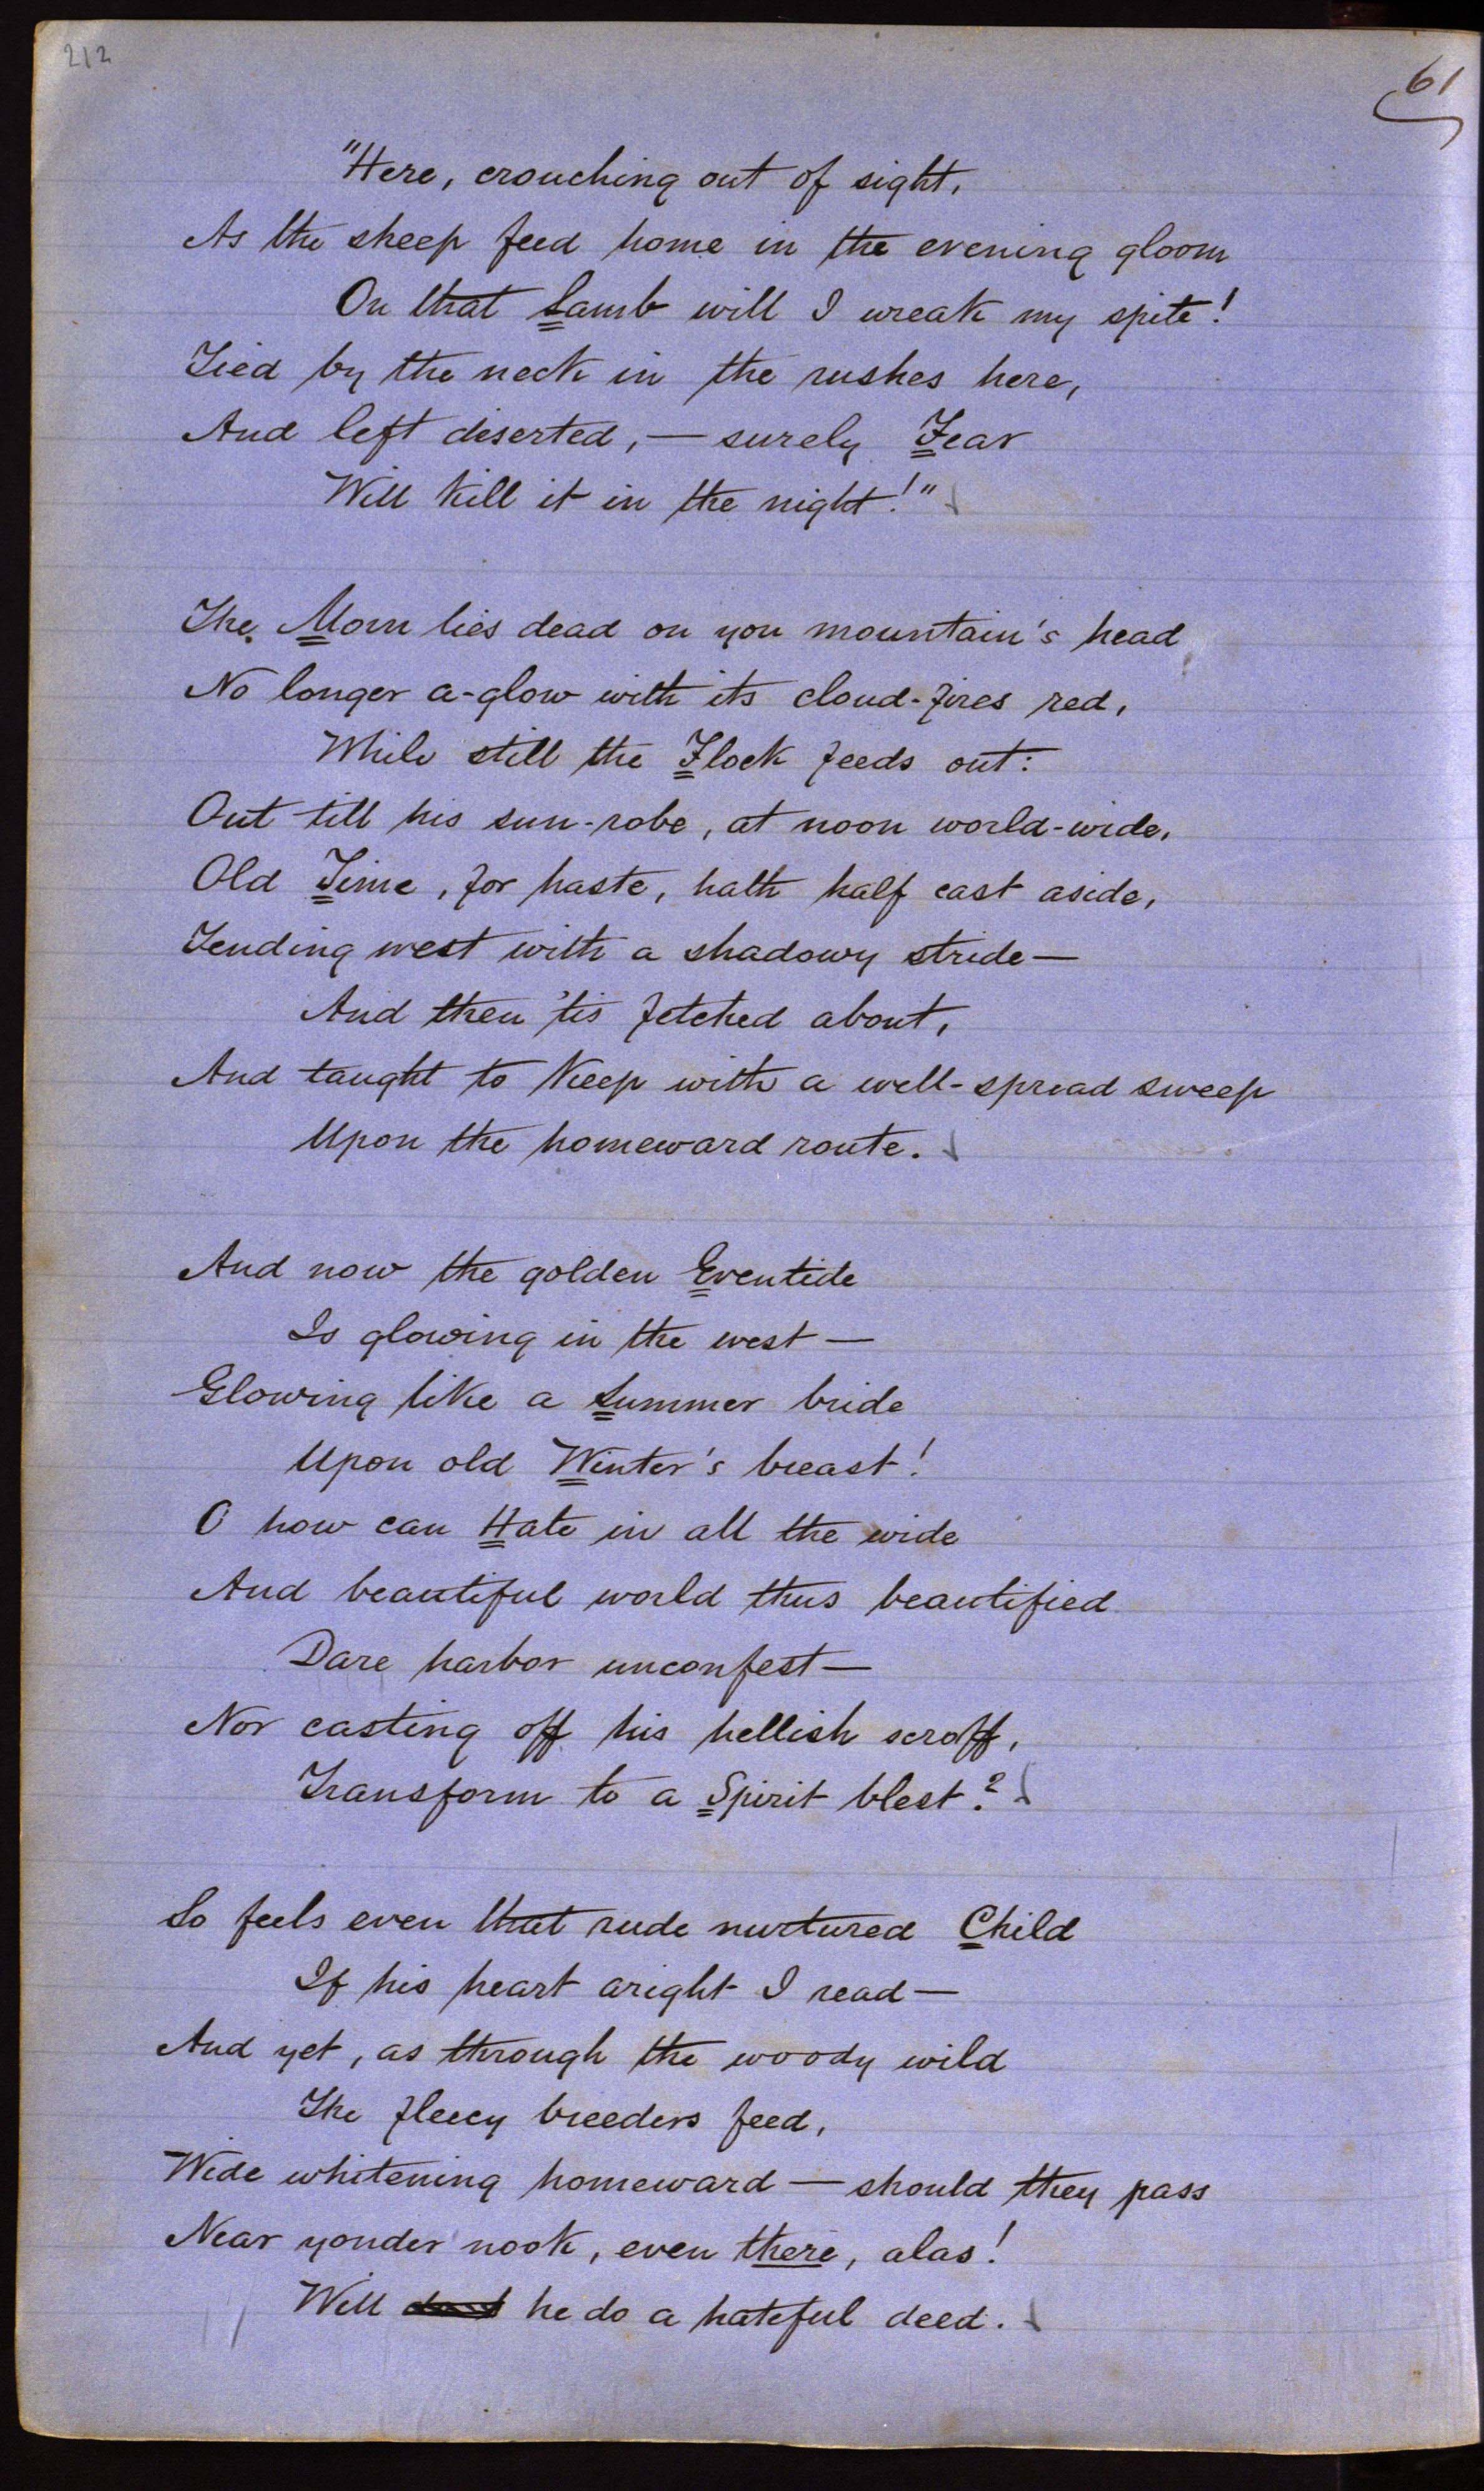 212
61
"Here, crouching out of sight,
As the sheep feed home in the evening gloom
On that Lamb will I wreak my spite!
Tied by the neck in the rushes here,
And left diserted, — surely Fear
Will kill it in the night!"
The Morn lies dead on yon mountain's head
No longer a-glow with its cloud-fires red,
While still the Flock feeds out:
Out till his sun-robe, at noon world-wide,
Old Time, for haste, hath half cast aside,
Tending west with a shadowy stride—
And then 'tis fetched about,
And taught to keep with a well-spread sweep
Upon the homeward route.
And now the golden Eventide
Is glowing in the west—
Glowing like a Summer bride
Upon old Winter's breast!
O how can Hate in all the wide
And beautiful world thus beautified
Dare harbor unconfest—
Nor casting off his hellish scroff,
Transform to a Spirit blest?
So feels even that rude nurtured Child
If his heart aright I read—
And yet, as through the woody wild
The fleecy breeders feed,
Wide whitening homeward — should they pass
Near yonder nook, even there, alas!
Will he do a hateful deed.